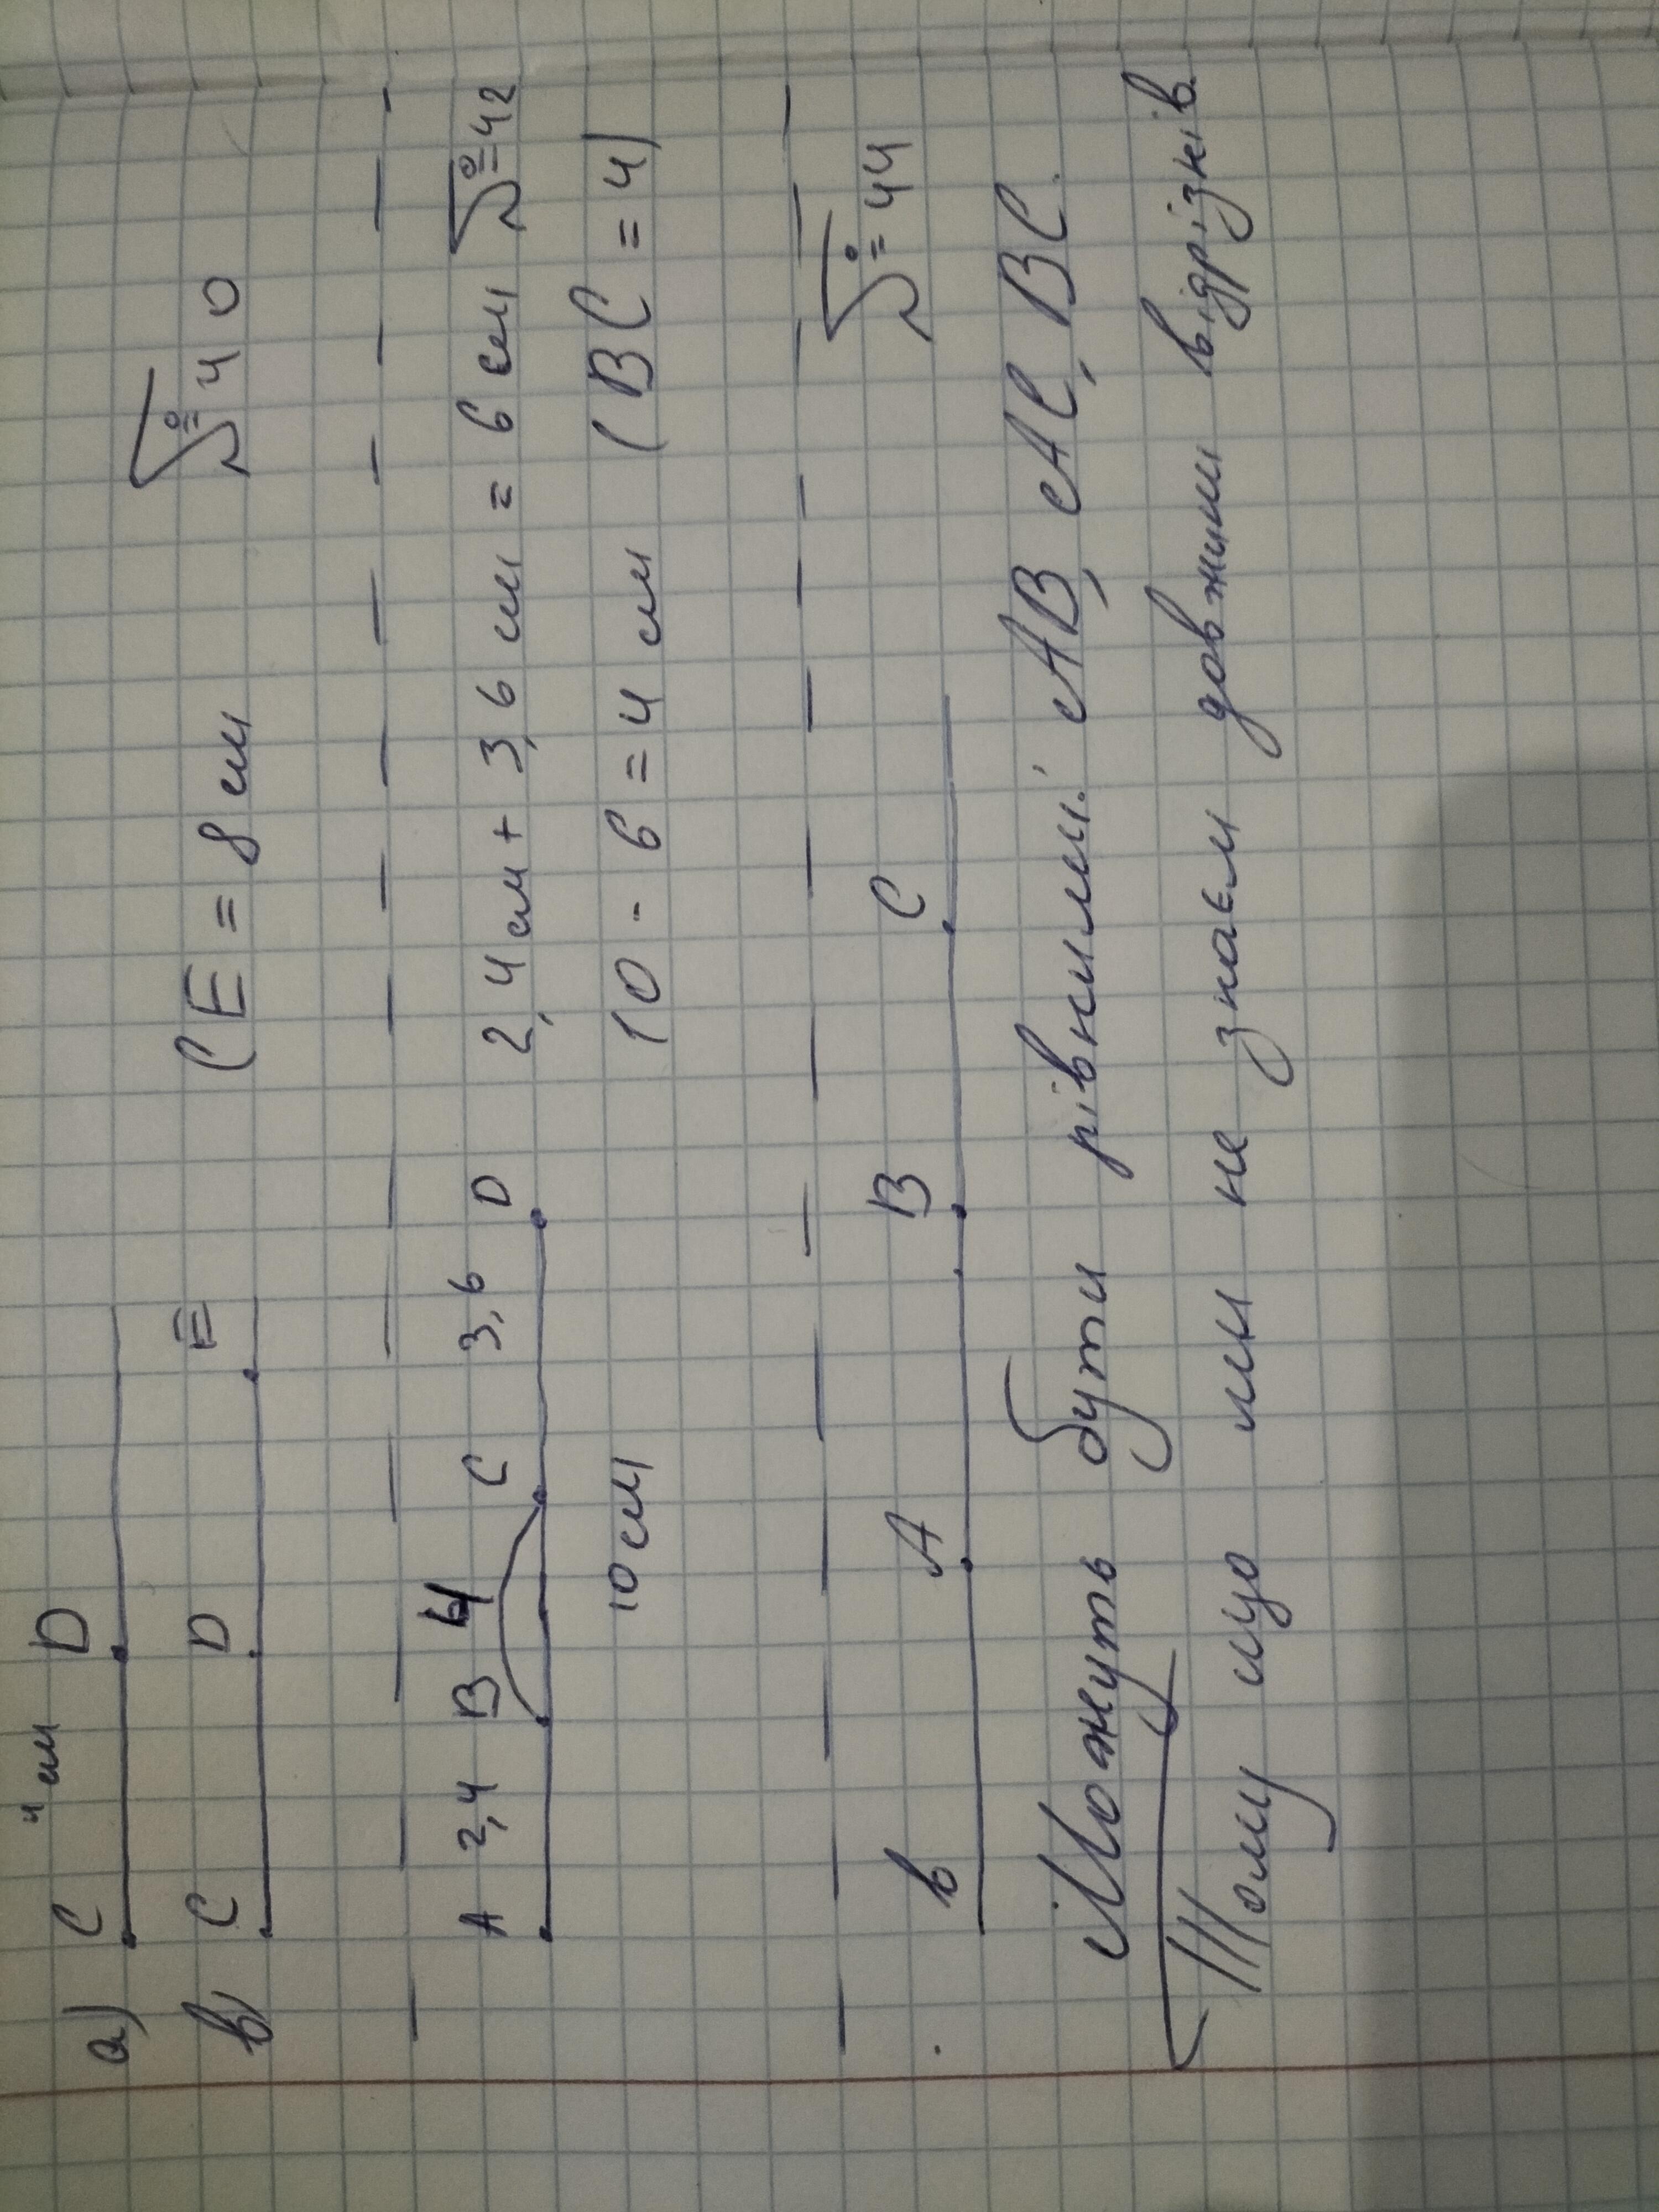 а) C 4 см D
в) C D E CE = 8 см № 40
A 2,4 B 4 C 3,6 D 2,4 см + 3,6 см = 6 см № 42
10 см 10 - 6 = 4 см (BC = 4)
b A B C № 44
Можуть бути рівними: AB, AC, BC.
Тому що ми не знаєм довжини відрізків.